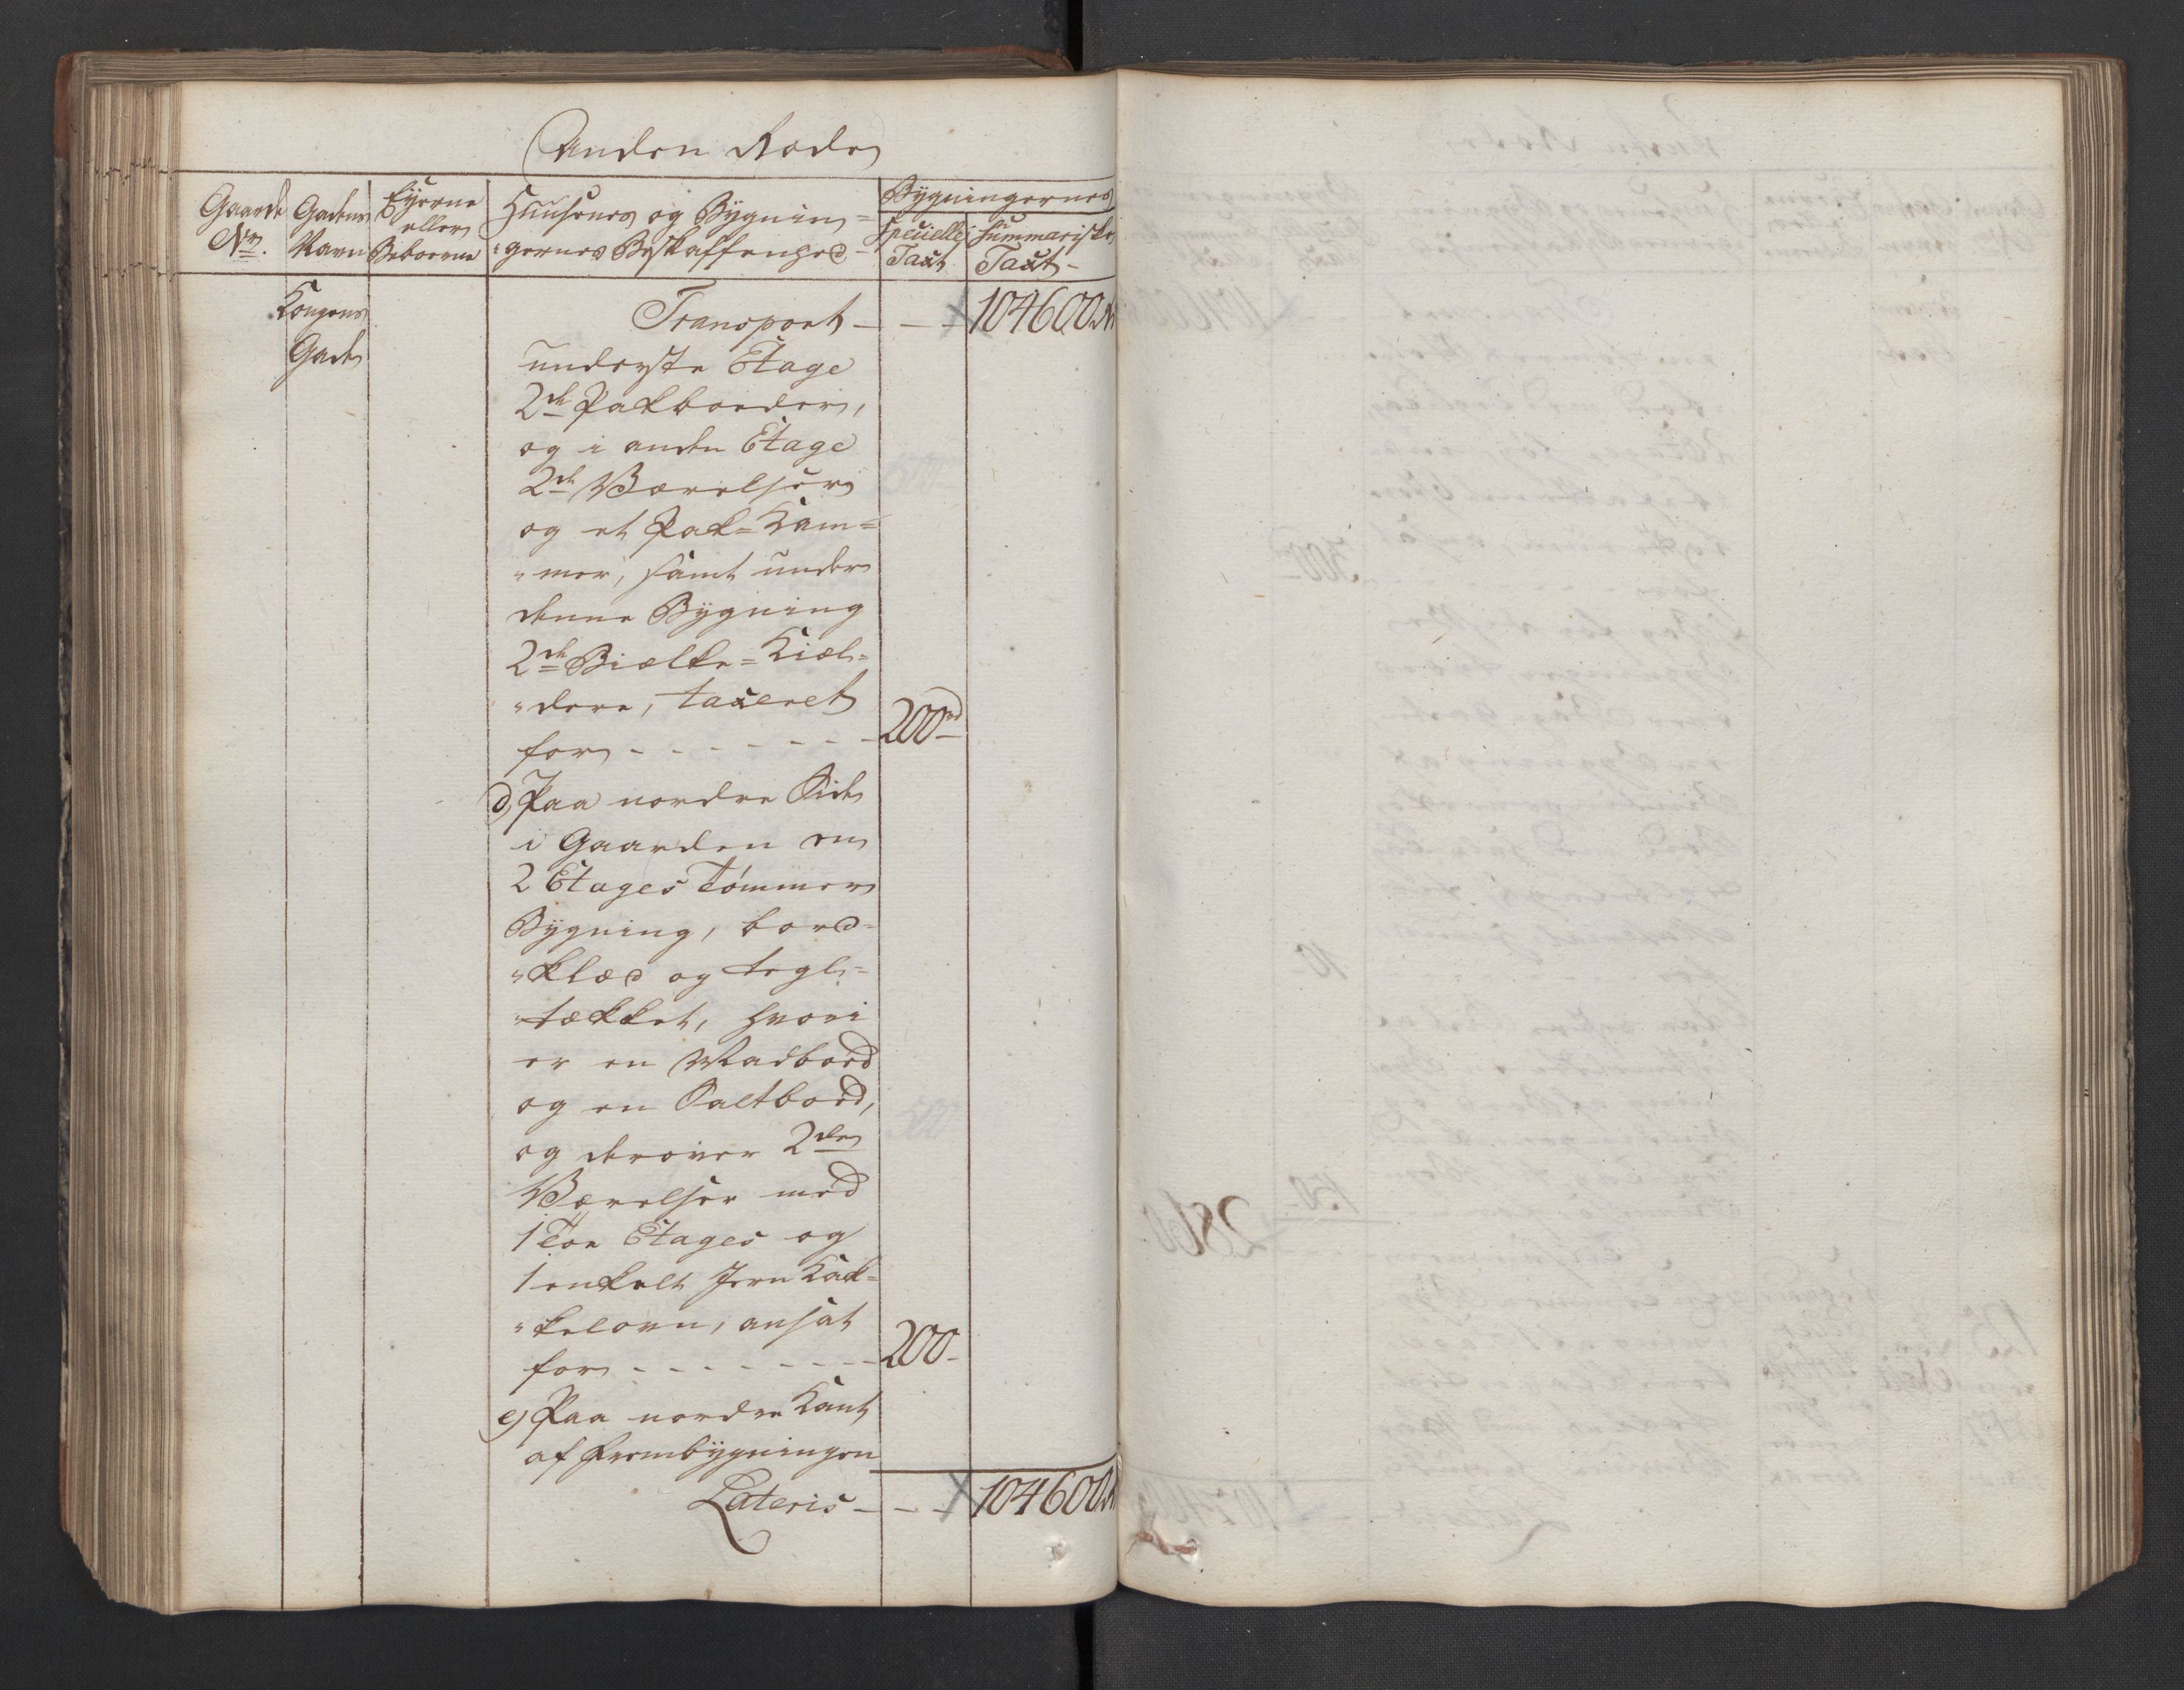 Anden Rode
Gaarde Nr.
Gadens Navn
Eyerne eller Beboerne
Huusenes og Bygnin=
"gernes Beskaffenhed
Bygningernes
Specielle Taxt
Summariske Taxt
Kongens
Gade
Transport - - - 104600 rd
underste Etage
2de Pakboeder,
og i anden Etage
2de Værelser
og et Pak=Kam=
"mer, samt under
denne Bygning
2de Biælke=Kiæl=
"dere, taxeret
for - - - - - - - 200 rd
d, Paa nordre Side
i Gaarden en
2 Etages Tømmer
Bygning, bord=
"klæd og tegl=
"tækket, hvori
er en Madboed
og en Saltboed,
og derover 2de
Værelser med
1 Toe Etages og
1 enkelt Jern Kak=
"kelovn, ansat
for - - - - - - - 200 -
e, Paa nordre Kant
af Frembygningen
Lateris - - - 104600 rd